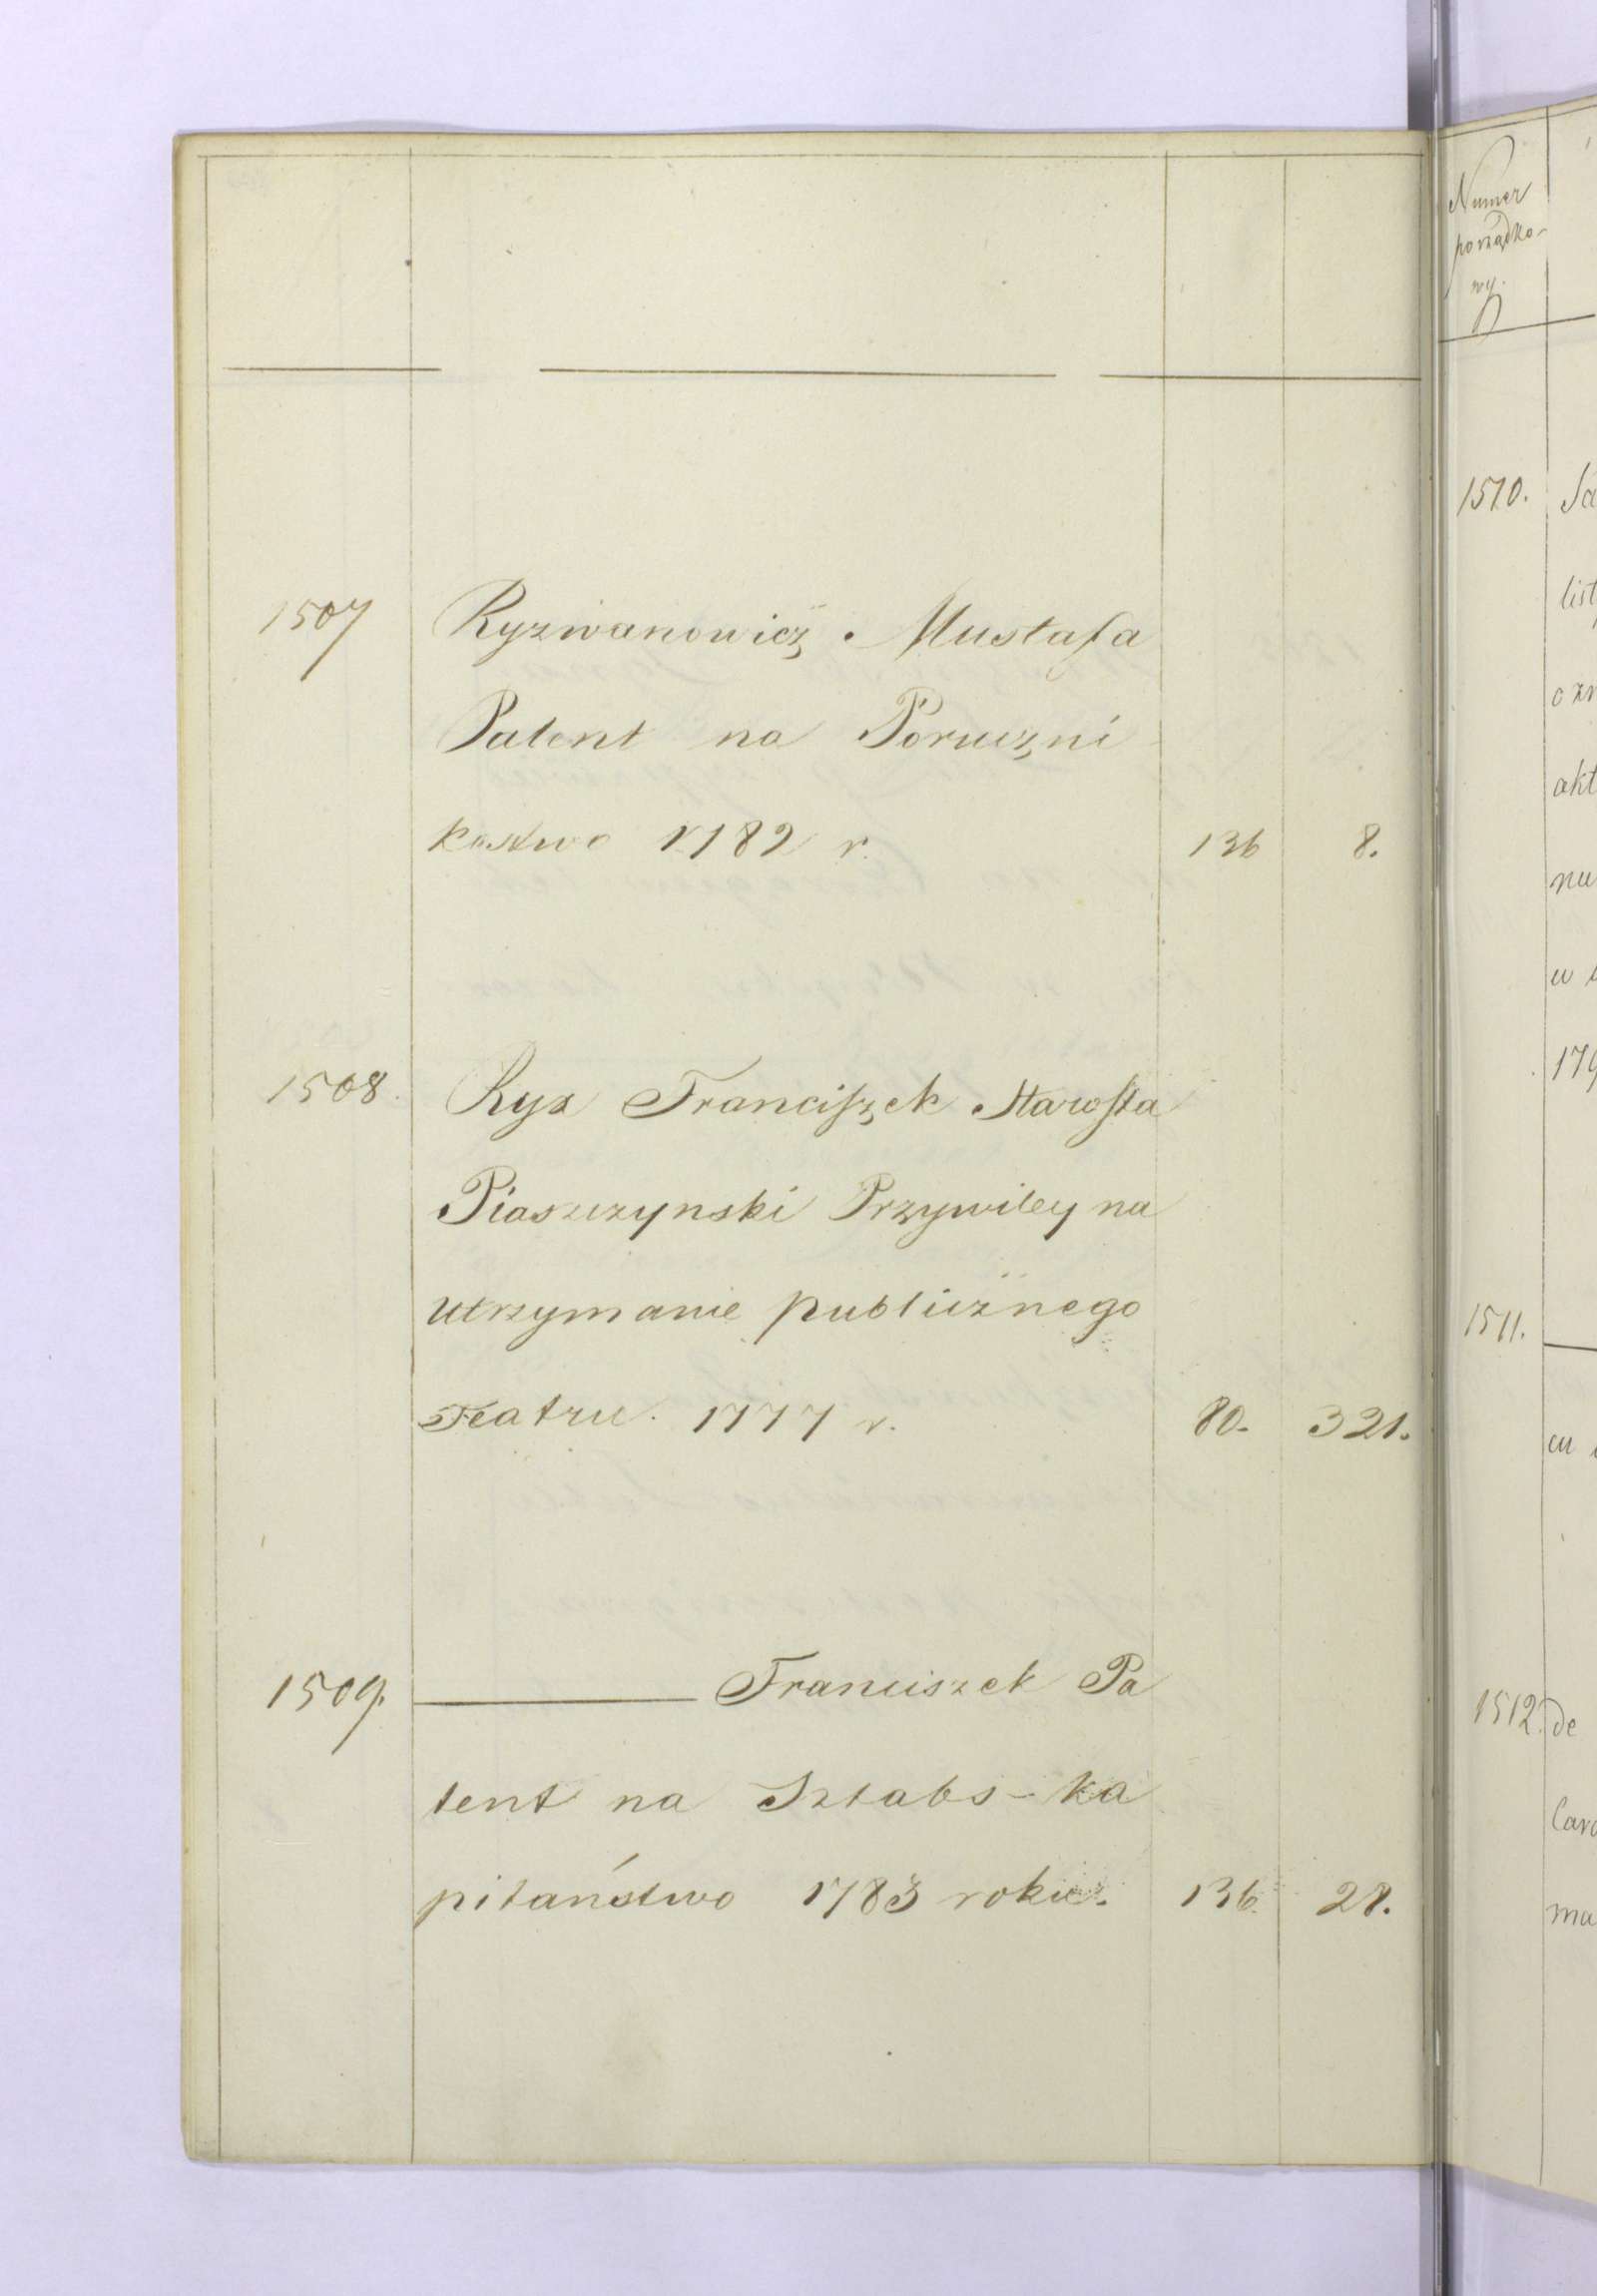 1507 Ryzwanowicz Mustafa
Patent na Poruczni
kostwo 1782 r. 136 8.
1508. Ryx Franciszek Starosta
Piaszczynski Przywiley na
utrzymanie publicznego
Teatru. 1777 r. 80. 321.
1509. ——— Franciszek Pa
tent na Sztabs-ka
pitaństwo 1783 roku. 136. 28.
Numer
porządko-
wy.
1510.
list
akt
1511.
1512. de